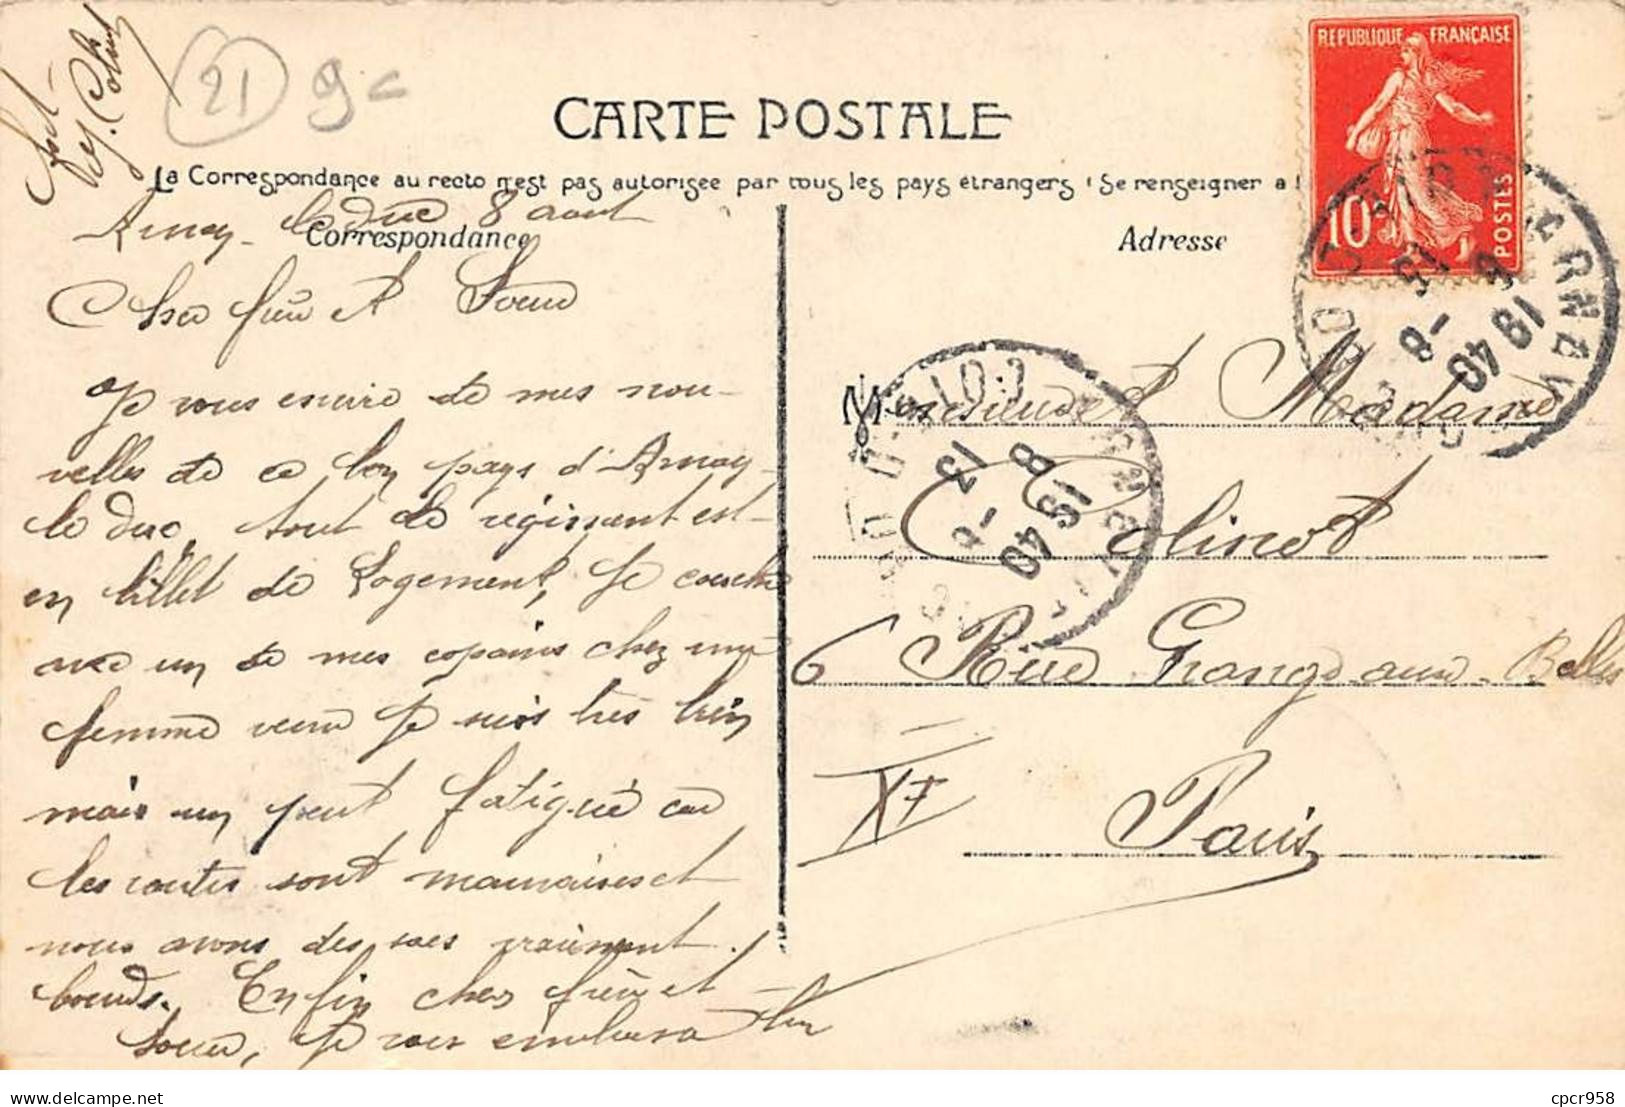 21 9c
CARTE POSTALE
La Correspondance au recto n'est pas autorisée par tous les pays étrangers (Se renseigner a
Arnay-le duc 8 aout
Correspondance
Adresse
REPUBLIQUE FRANÇAISE
10c
POSTES
Cher frère et Soeur
Je vous envoie de mes nou-
velles de ce bon pays d'Arnay-
le duc, tout le régiment est
en billet de Logement, Je couche
avec un de mes copains chez une
femme veuve Je suis très bien
mais un peut fatigué car
les routes sont mauvaises et
nous avons des sacs vraiment
lourds. Enfin cher frère et
Soeur, Je vous embrasse
Colinot
Monsieur et Madame
Colinot
6 Rue Grange-aux-Belles
Paris
XE
COTE-D'OR
13
8-8
18 40
cpcr958